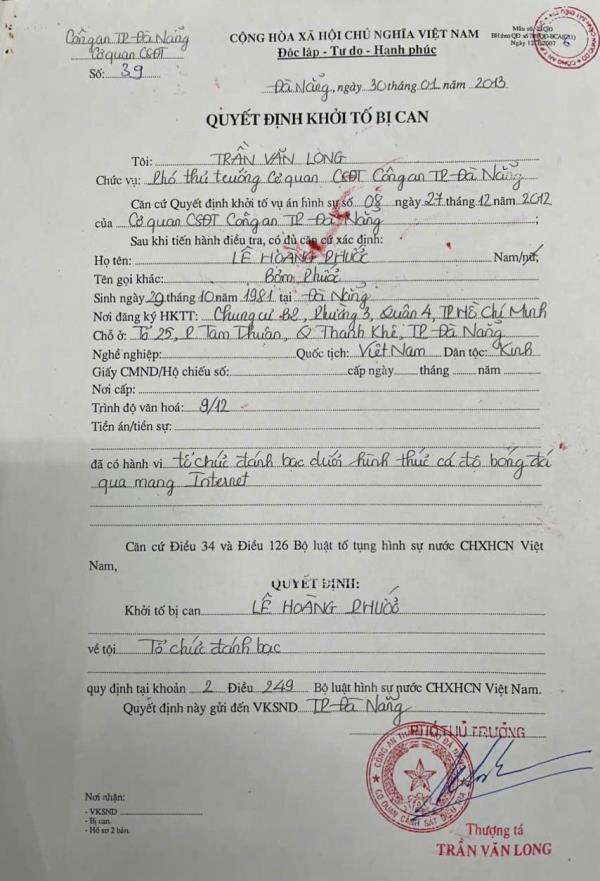 Công an TP-Đà Nẵng
Cơ quan CSĐT
Số: 39
CỘNG HÒA XÃ HỘI CHỦ NGHĨA VIỆT NAM
Độc lập - Tự do - Hạnh phúc
Mẫu số:
BH theo QĐ số
Ngày 2007
Đà Nẵng, ngày 30 tháng 01 năm 2013
QUYẾT ĐỊNH KHỞI TỐ BỊ CAN
Tôi: TRẦN VĂN LONG
Chức vụ: Phó thủ trưởng Cơ quan CSĐT Công an TP-Đà Nẵng
Căn cứ Quyết định khởi tố vụ án hình sự số 08 ngày 27 tháng 12 năm 2012
của Cơ quan CSĐT Công an TP-Đà Nẵng ;
Sau khi tiến hành điều tra, có đủ căn cứ xác định:
Họ tên: LÊ HOÀNG PHƯỚC Nam/nữ
Tên gọi khác: Bờm, Phước
Sinh ngày 29 tháng 10 năm 1981 tại Đà Nẵng
Nơi đăng ký HKTT: Chung cư B2, Phường 3, Quận 4, TP Hồ Chí Minh
Chỗ ở: Tổ 25, P. Tam Thuận, Q Thanh Khê, TP-Đà Nẵng
Nghề nghiệp: Quốc tịch: Việt Nam Dân tộc: Kinh
Giấy CMND/Hộ chiếu số: cấp ngày tháng năm
Nơi cấp:
Trình độ văn hoá: 9/12
Tiền án/tiền sự:
đã có hành vi tổ chức đánh bạc dưới hình thức cá độ bóng đá
qua mạng Internet
Căn cứ Điều 34 và Điều 126 Bộ luật tố tụng hình sự nước CHXHCN Việt
Nam,
QUYẾT ĐỊNH:
Khởi tố bị can LÊ HOÀNG PHƯỚC
về tội Tổ chức đánh bạc
quy định tại khoản 2 Điều 249 Bộ luật hình sự nước CHXHCN Việt Nam.
Quyết định này gửi đến VKSND TP-Đà Nẵng
PHÓ THỦ TRƯỞNG
CÔNG AN THÀNH PHỐ ĐÀ NẴNG
CƠ QUAN CẢNH SÁT ĐIỀU TRA
Nơi nhận:
- VKSND
- Bị can.
- Hồ sơ 2 bản.
Thượng tá
TRẦN VĂN LONG